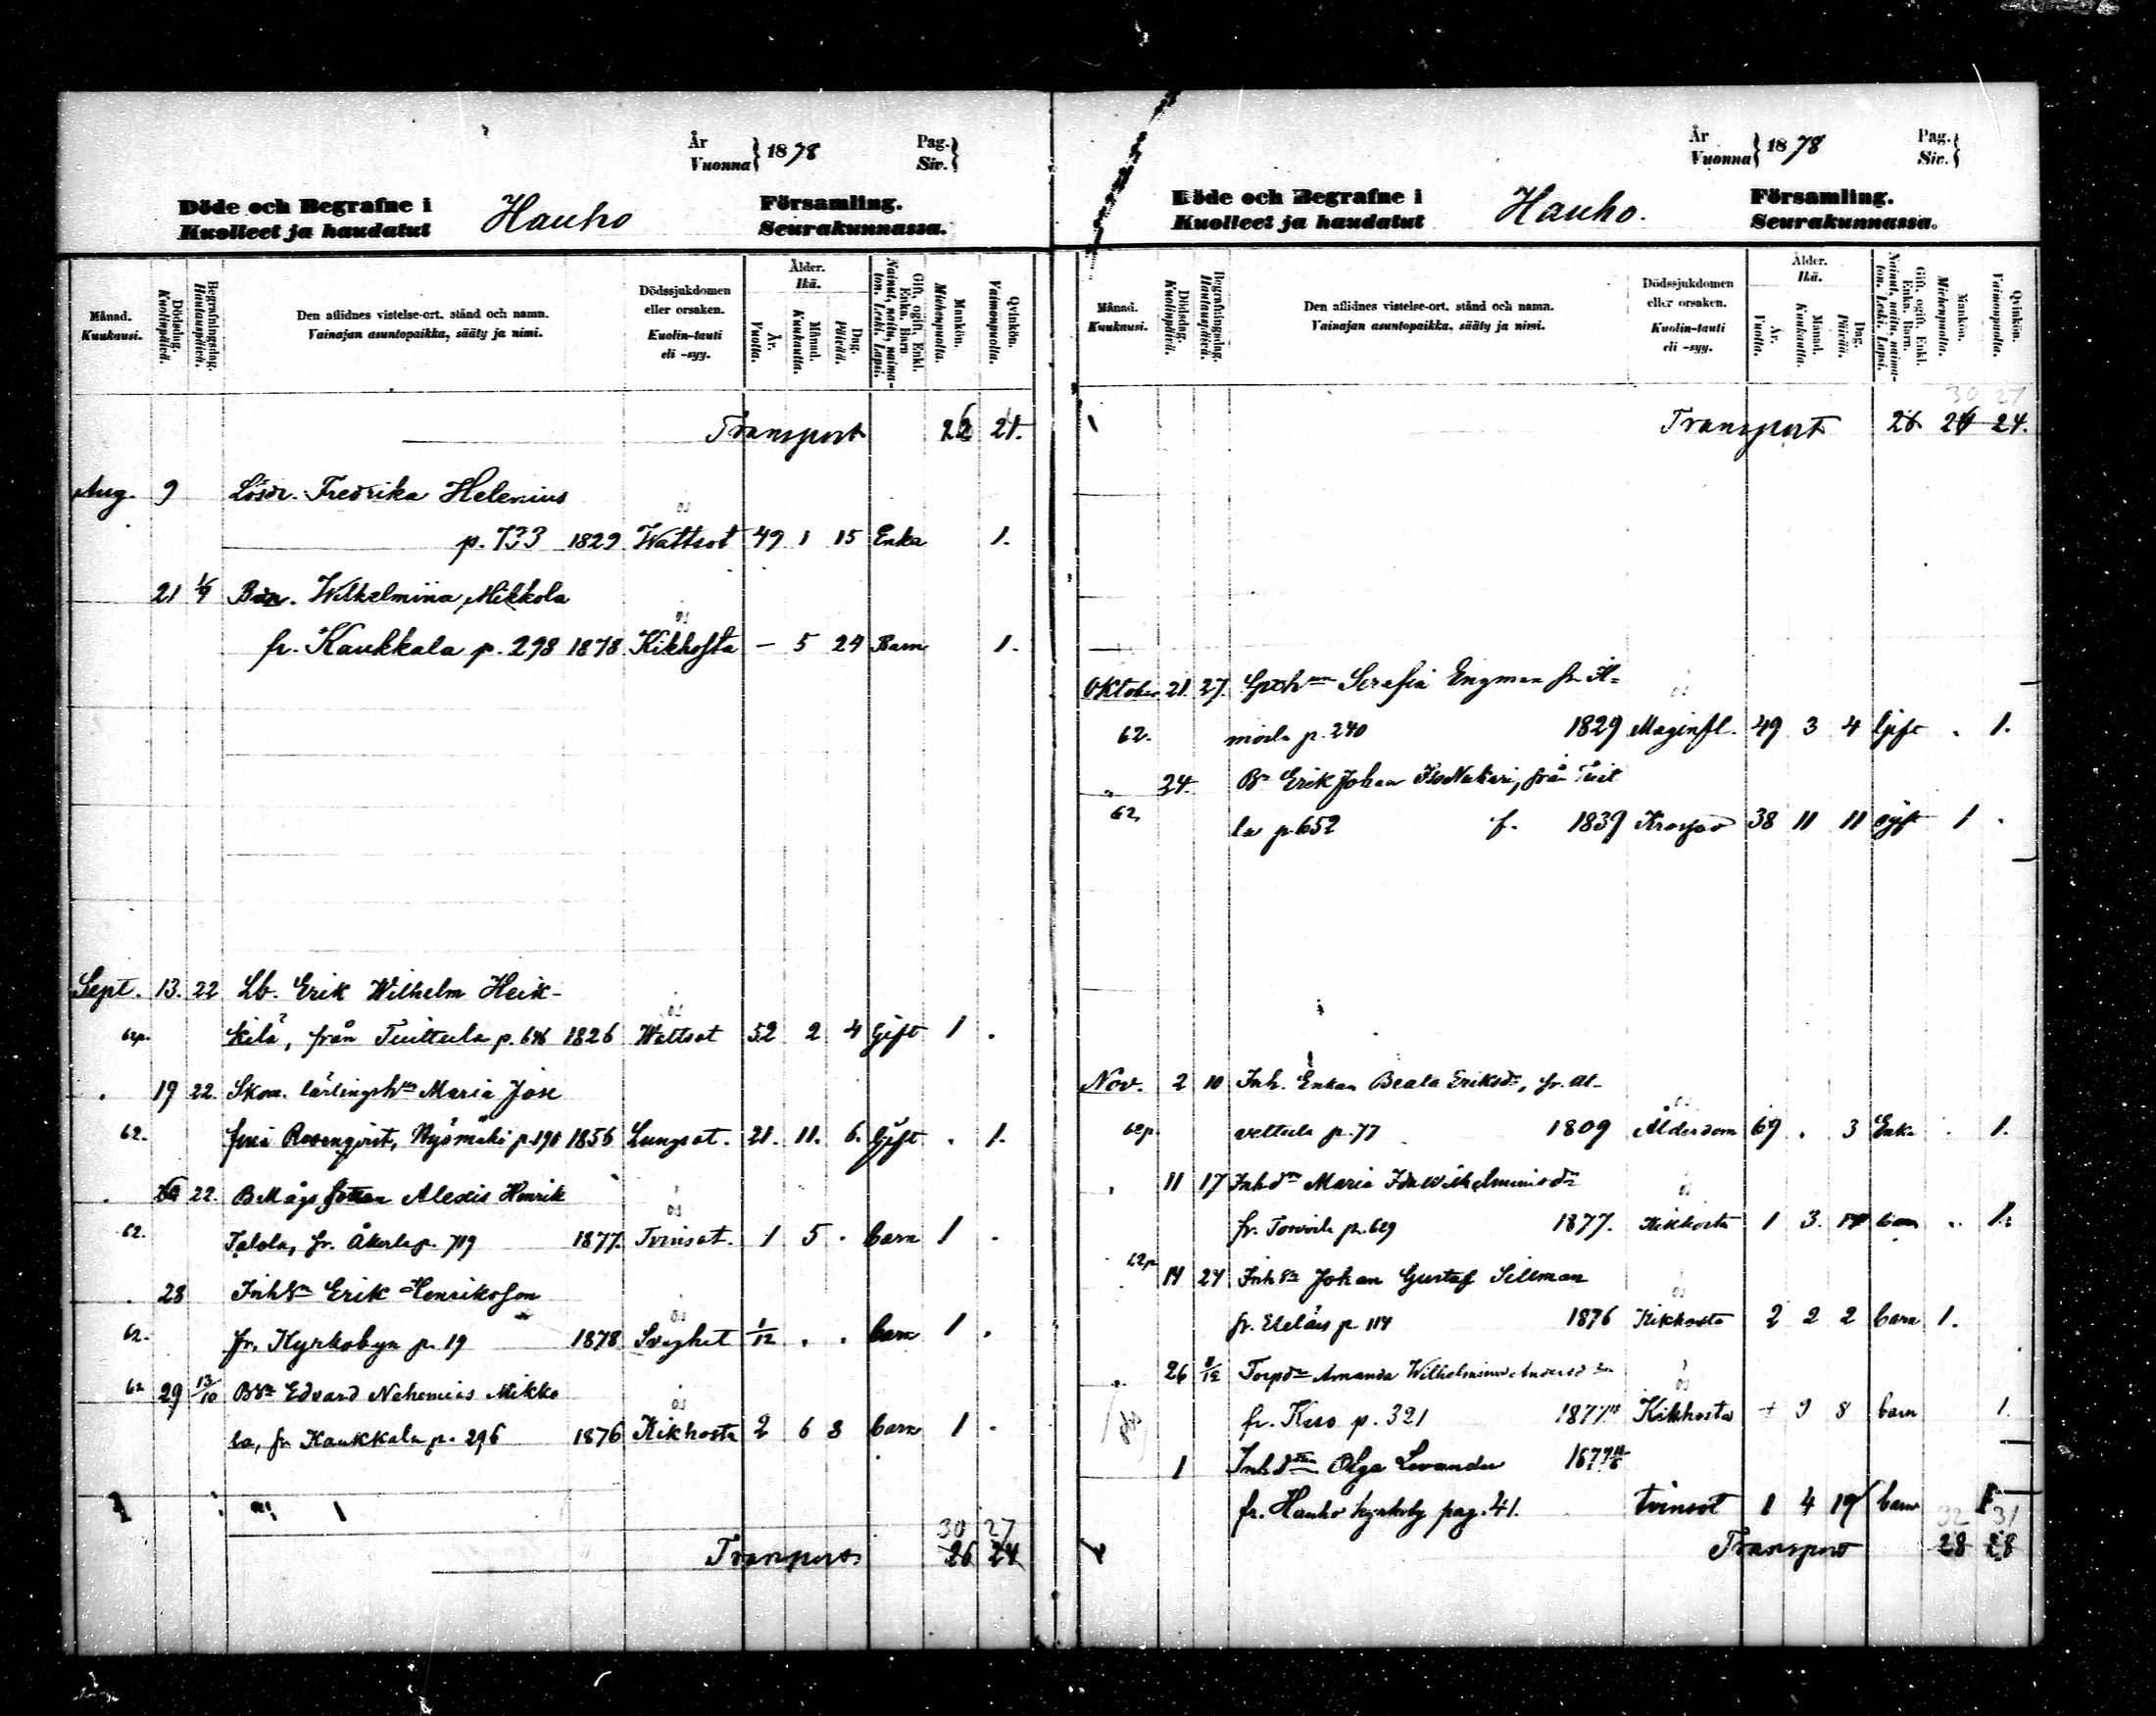 År
Vuonna } 1878
Pag.
Siv. }
Döde och Begrafne i Hauho Församling.
Kuolleet ja haudatut Seurakunnassa.
Månad.
Kuukausi.
Dödsdag.
Kuolinpäivä.
Begrafningsdag.
Hautauspäivä.
Den aflidnes vistelse-ort, stånd och namn.
Vainajan asuntopaikka, sääty ja nimi.
Dödssjukdomen
eller orsaken.
Kuolin-tauti
eli -syy.
Ålder.
Ikä.
År.
Vuotta.
Månad.
Kuukautta.
Dag.
Päivää.
Gift, ogift, Enkl.
Enka, Barn.
Nainut, naitu, naima-
ton, Leski, Lapsi.
Mankön.
Miehenpuolta.
Qvinkön.
Vaimonpuolta.
Transport 21.
Aug. 9 Lösdr. Fredrika Helenius
p. 733 1829 Wattsot 49 1 15 Enka 1.
21 Wilhelmina Mikkola
fr. Kaukkala p. 298 1878 Kikhosta – 5 24 Barn 1.
Sept. 13. 22 Lb. Erik Wilhelm Heik-
kilä, från Tuittula p. 646 1826 Wattsot 52 2 4 Gift 1 .
19 22. Skom. lärlingsh:n Maria Jose
62. fina Rosenqvist, Nysmäki p. 190 1856 Lungsot. 21. 11. 6. Gift . 1.
22. Alexis Henrik
62. Talola, fr. Åkerla p. 719 1877. Tvinsot. 1 5 . barn 1 .
28 Inhs:n Erik Henriksson
62. fr. Kyrkobyn p. 19 1878 Svaghet 1/12 . . barn 1 .
62 29 13/10 Bs:n Edvard Nehemias Mikko
la, fr. Kaukkala p. 296 1876 Kikhosta 2 6 8 barn 1 .
30 27
Transport 26 24
År
Vuonna } 1878
Pag.
Siv. }
Döde och Begrafne i Hauho. Församling.
Kuolleet ja haudatut Seurakunnassa.
Månad.
Kuukausi.
Dödsdag.
Kuolinpäivä.
Begrafningsdag.
Hautauspäivä.
Den aflidnes vistelse-ort, stånd och namn.
Vainajan asuntopaikka, sääty ja nimi.
Dödssjukdomen
eller orsaken.
Kuolin-tauti
eli -syy.
Ålder.
Ikä.
År.
Vuotta.
Månad.
Kuukautta.
Dag.
Päivää.
Gift, ogift, Enkl.
Enka, Barn.
Nainut, naitu, naima-
ton, Leski, Lapsi.
Mankön.
Miehenpuolta.
Qvinkön.
Vaimonpuolta.
30 27
Transport 24.
Oktober 21. 27. Serafia Engman fr.
62. moila p. 240 1829 Maginfl. 49 3 4 Gift . 1.
24. B:n Erik Johan IsoNakari, från Tuit
62. la p. 652 f. 1839 38 11 11 gift 1 .
Nov. 2 10 Inh. Enkan Beata Eriksd:r, fr. Al-
62 p. vettula p. 77 1809 Ålderdom 69 . 3 Enka . 1.
11 17 Inhd:n Maria Ida Wilhelminad:r
fr. Torvoila p. 629 1877. Kikhosta 1 3. barn . 1.
62 p 14 24 Inhs:n Johan Gustaf Sillman
fr. Eteläis p. 114 1876 Kikhosta 2 2 2 barn 1.
26 8/12 Torpd:n Amanda Wilhelmina Andersd:n
fr. Kuo p. 321 1877 Kikhosta 9 8 barn 1.
1 Inhd:n Olga Levander 1877
fr. Hauho kyrkoby pag. 41. tvinsot 1 4 19 barn 1
32 31
Transport 28 28